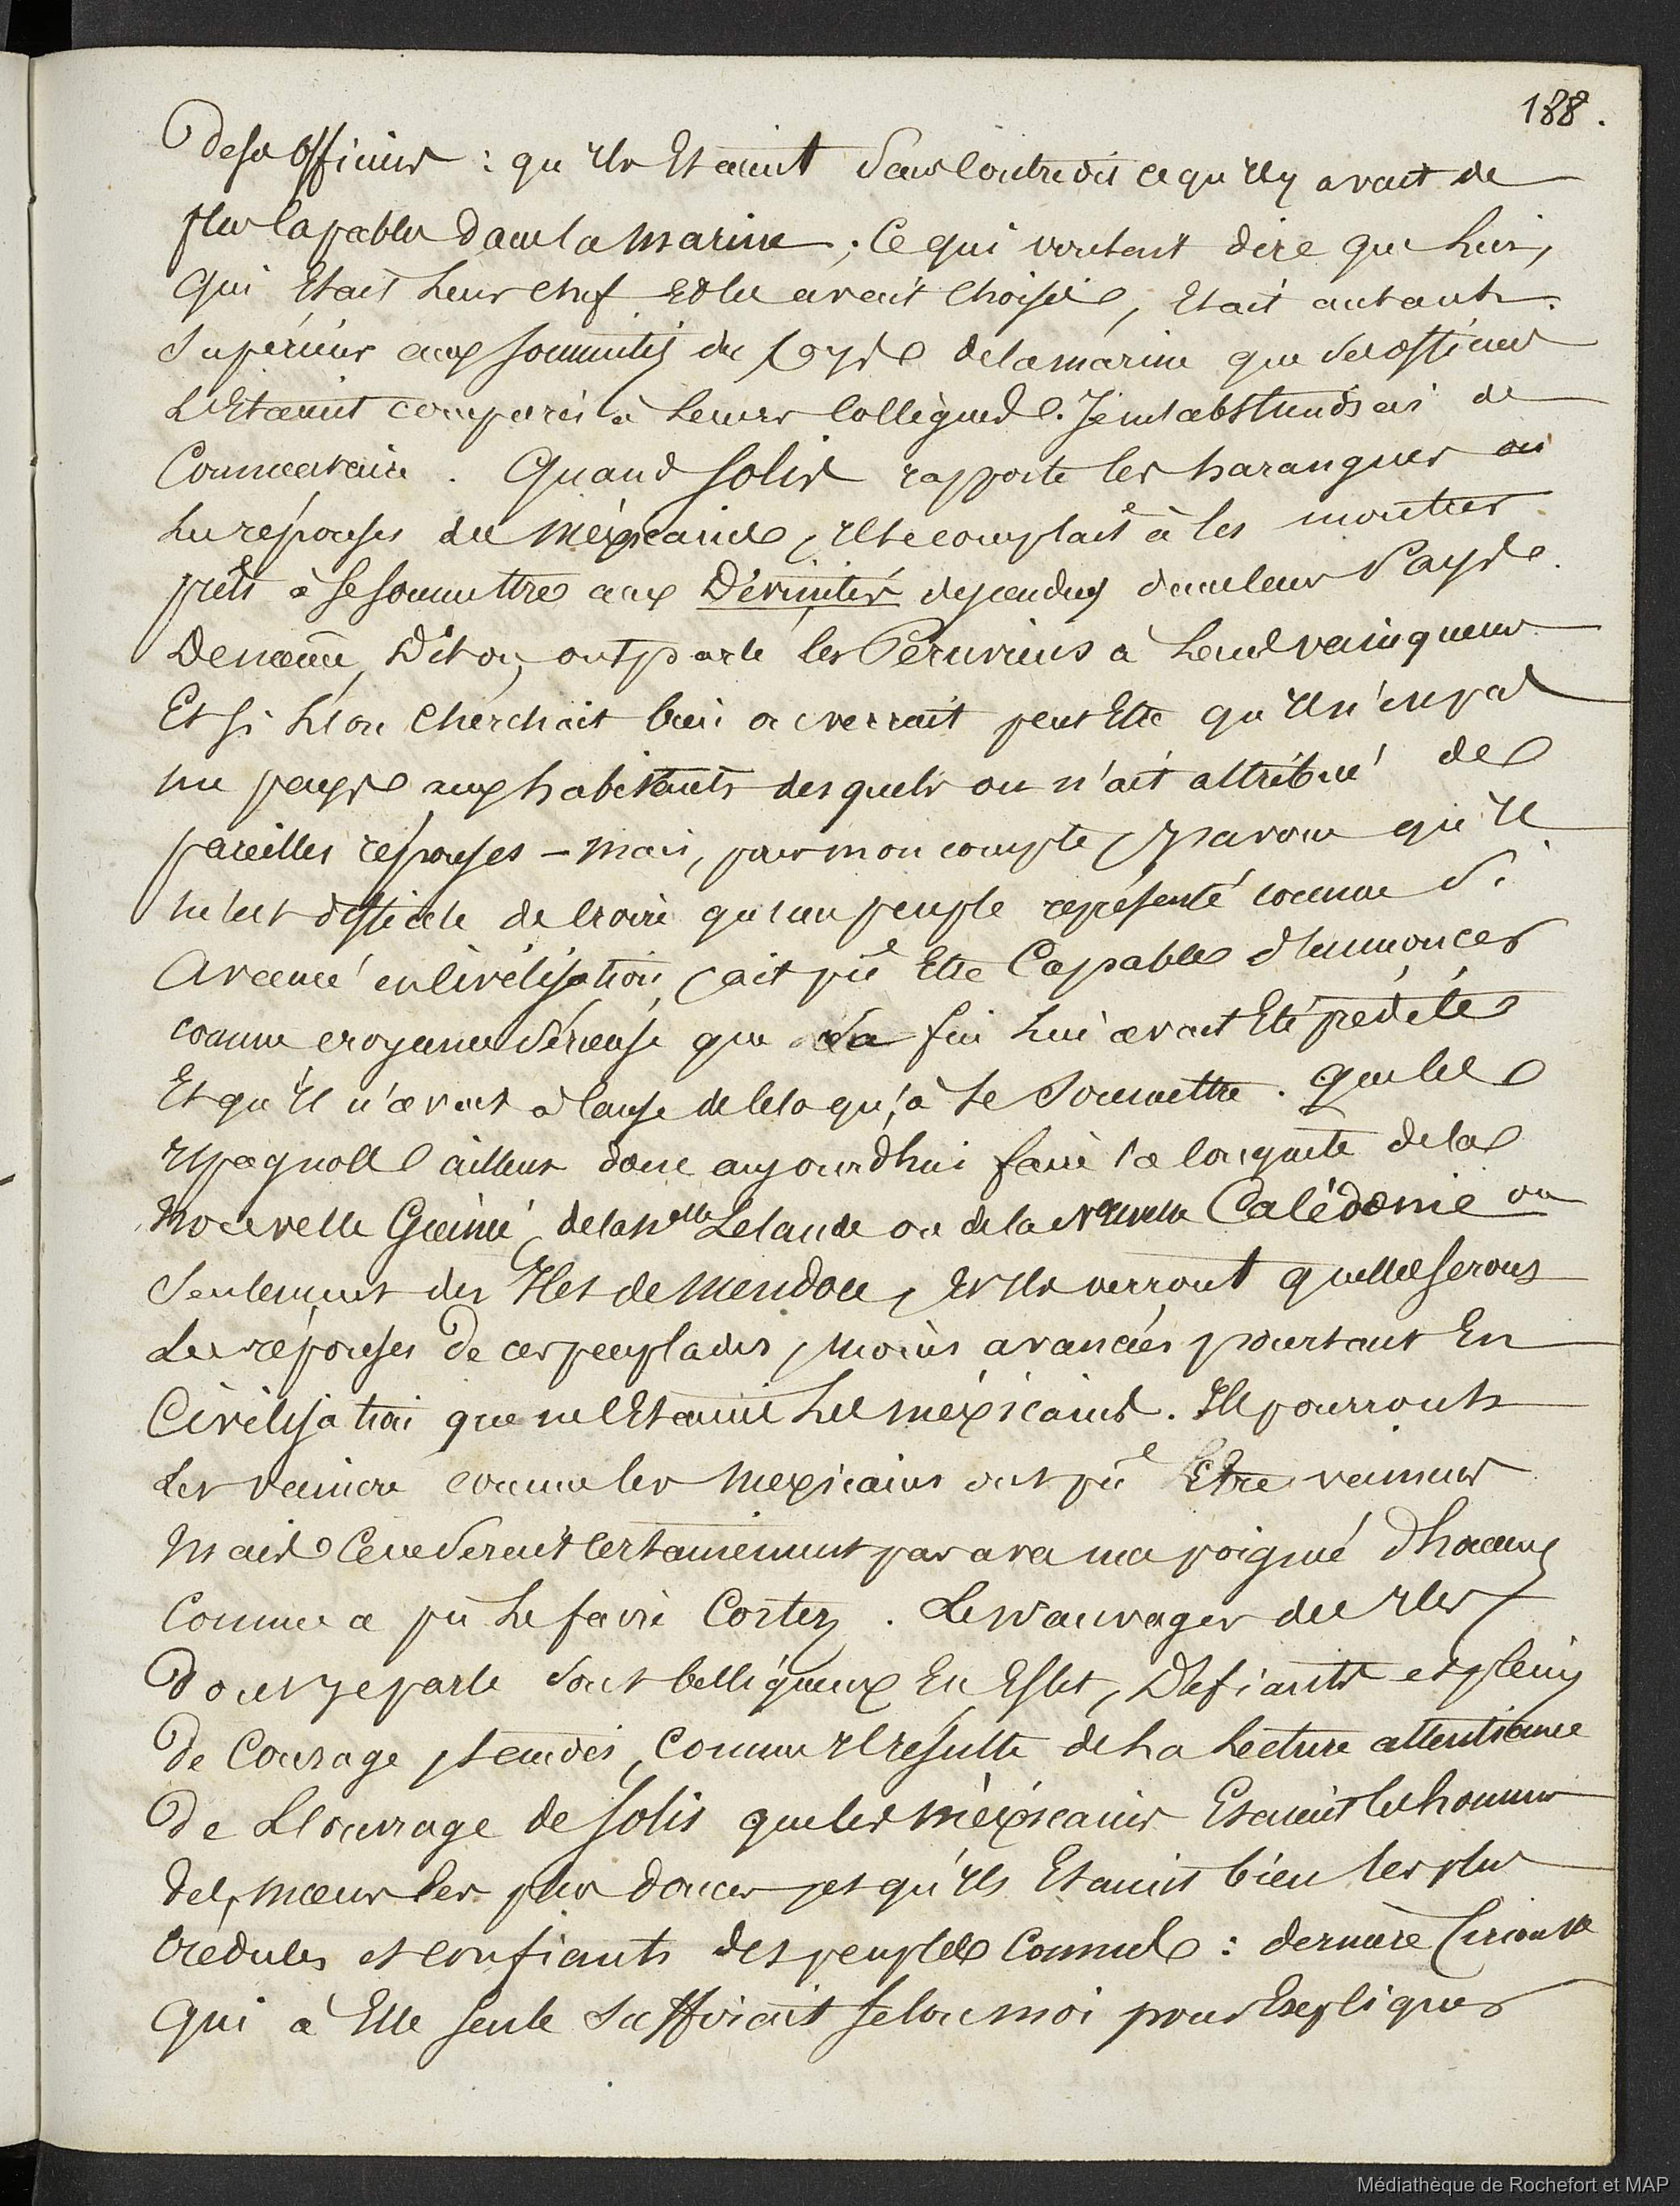 188.
de ses officiers : qu'ils Etaient sans contredit ce qu'il y avait de
plus capables dans la marine ; Ce qui voulait dire que Lui,
Qui Etait Leur chef et les avait Choisis, Etait autant
Supérieur aux sommités du Corps de la marine que ses officiers
L'Etaient comparés à Leurs Collègues. Je m'abstiendrai de
Commentaire. Quand Solis rapporte les harangues ou
Les réponses des Méxicains, il se complait à les montrer
prêts à se soumettre aux Divinités descendues dans leur Pays.
De même, Dit on, ont parlé les Péruviens à Leurs vainqueurs
Et si L'on Cherchait bien on verrait peut Etre qu'il n'est pas
un pays aux habitants desquels on n'ait attribué de
pareilles réponses – mais, pour mon compte, j'avoue qu'il
m'est difficile de croire qu'un peuple représenté comme si
Avancé en Civilisation, ait pû Etre Capable d'annoncer
comme croyance sérieuse que sa fin Lui avait Eté prédite
Et qu'il n'avait à cause de cela qu'à se soumettre. Que les
Espagnols aillent donc aujourdhui faire la conquête de la
Nouvelle Guinée, de la Nlle Zélande ou de la Nouvelle Calédonie ou
Seulement des Iles de Mendoce, et ils verront quelles seront
Les réponses de ces peuplades, moins avancées pourtant En
Civilisation que ne l'Etaient Les méxicains. Ils pourront
Les vaincre comme les Mexicains ont pû Etre vaincus
Mais Ce ne serait certainement pas avec une poignée d'hommes
Comme a pû Le faire Cortez. Les sauvages des Iles
Dont je parle sont belliqueux En Effet, Défiants et pleins
De Courage, tandis, Comme il résulte de La Lecture attentionnée
De L'ouvrage de Solis que les méxicains Etaient les hommes
des mœurs les plus douces, et qu'ils Etaient bien les plus
crédules et confiants des peuples Connus : dernière Circonstce
Qui à Elle seule suffirait selon moi pour Expliquer
Médiathèque de Rochefort et MAP